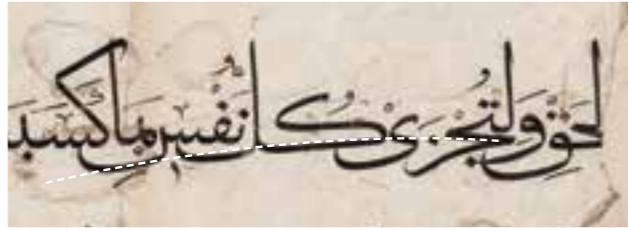 لحق ولتجزى كل نفس بما كسب